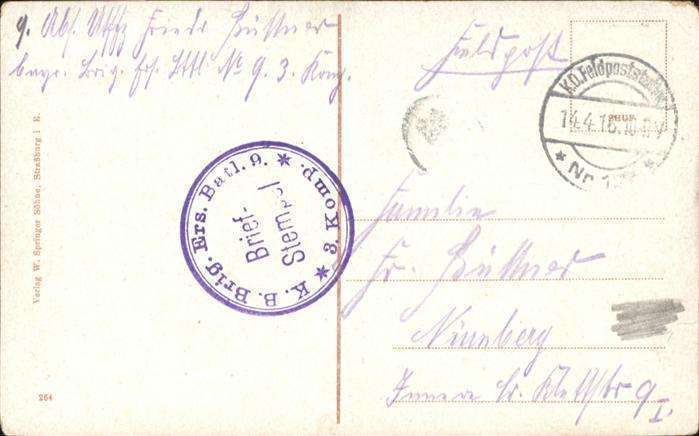 g. Abs. Uffz Friedr Büttner
bayr. Brig. Ers. Batl No 9. 3. Komp.
Feldpost
K.D. Feldpoststation
14.4.16. 10-11 V
* Nr. *
K. B. Brig. Ers. Batl. 9. * 3. Komp. *
Brief-
Stempel
Familie
Fr. Büttner
Nürnberg
Innere Cr. Kleestr 9
I.
Verlag W. Springer Söhne, Straßburg i. E.
264